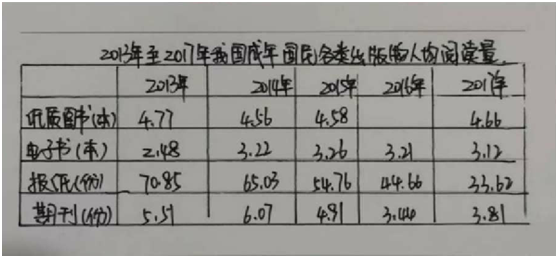 2013年至2017年我国成年国民各类出版物人均阅读量
2013年 2014年 2015年 2016年 2017年
纸质图书(本) 4.77 4.56 4.58 4.66
电子书(本) 2.48 3.22 3.26 3.21 3.12
报纸(份) 70.85 65.03 54.76 44.66 33.62
期刊(份) 5.51 6.07 4.91 3.44 3.81